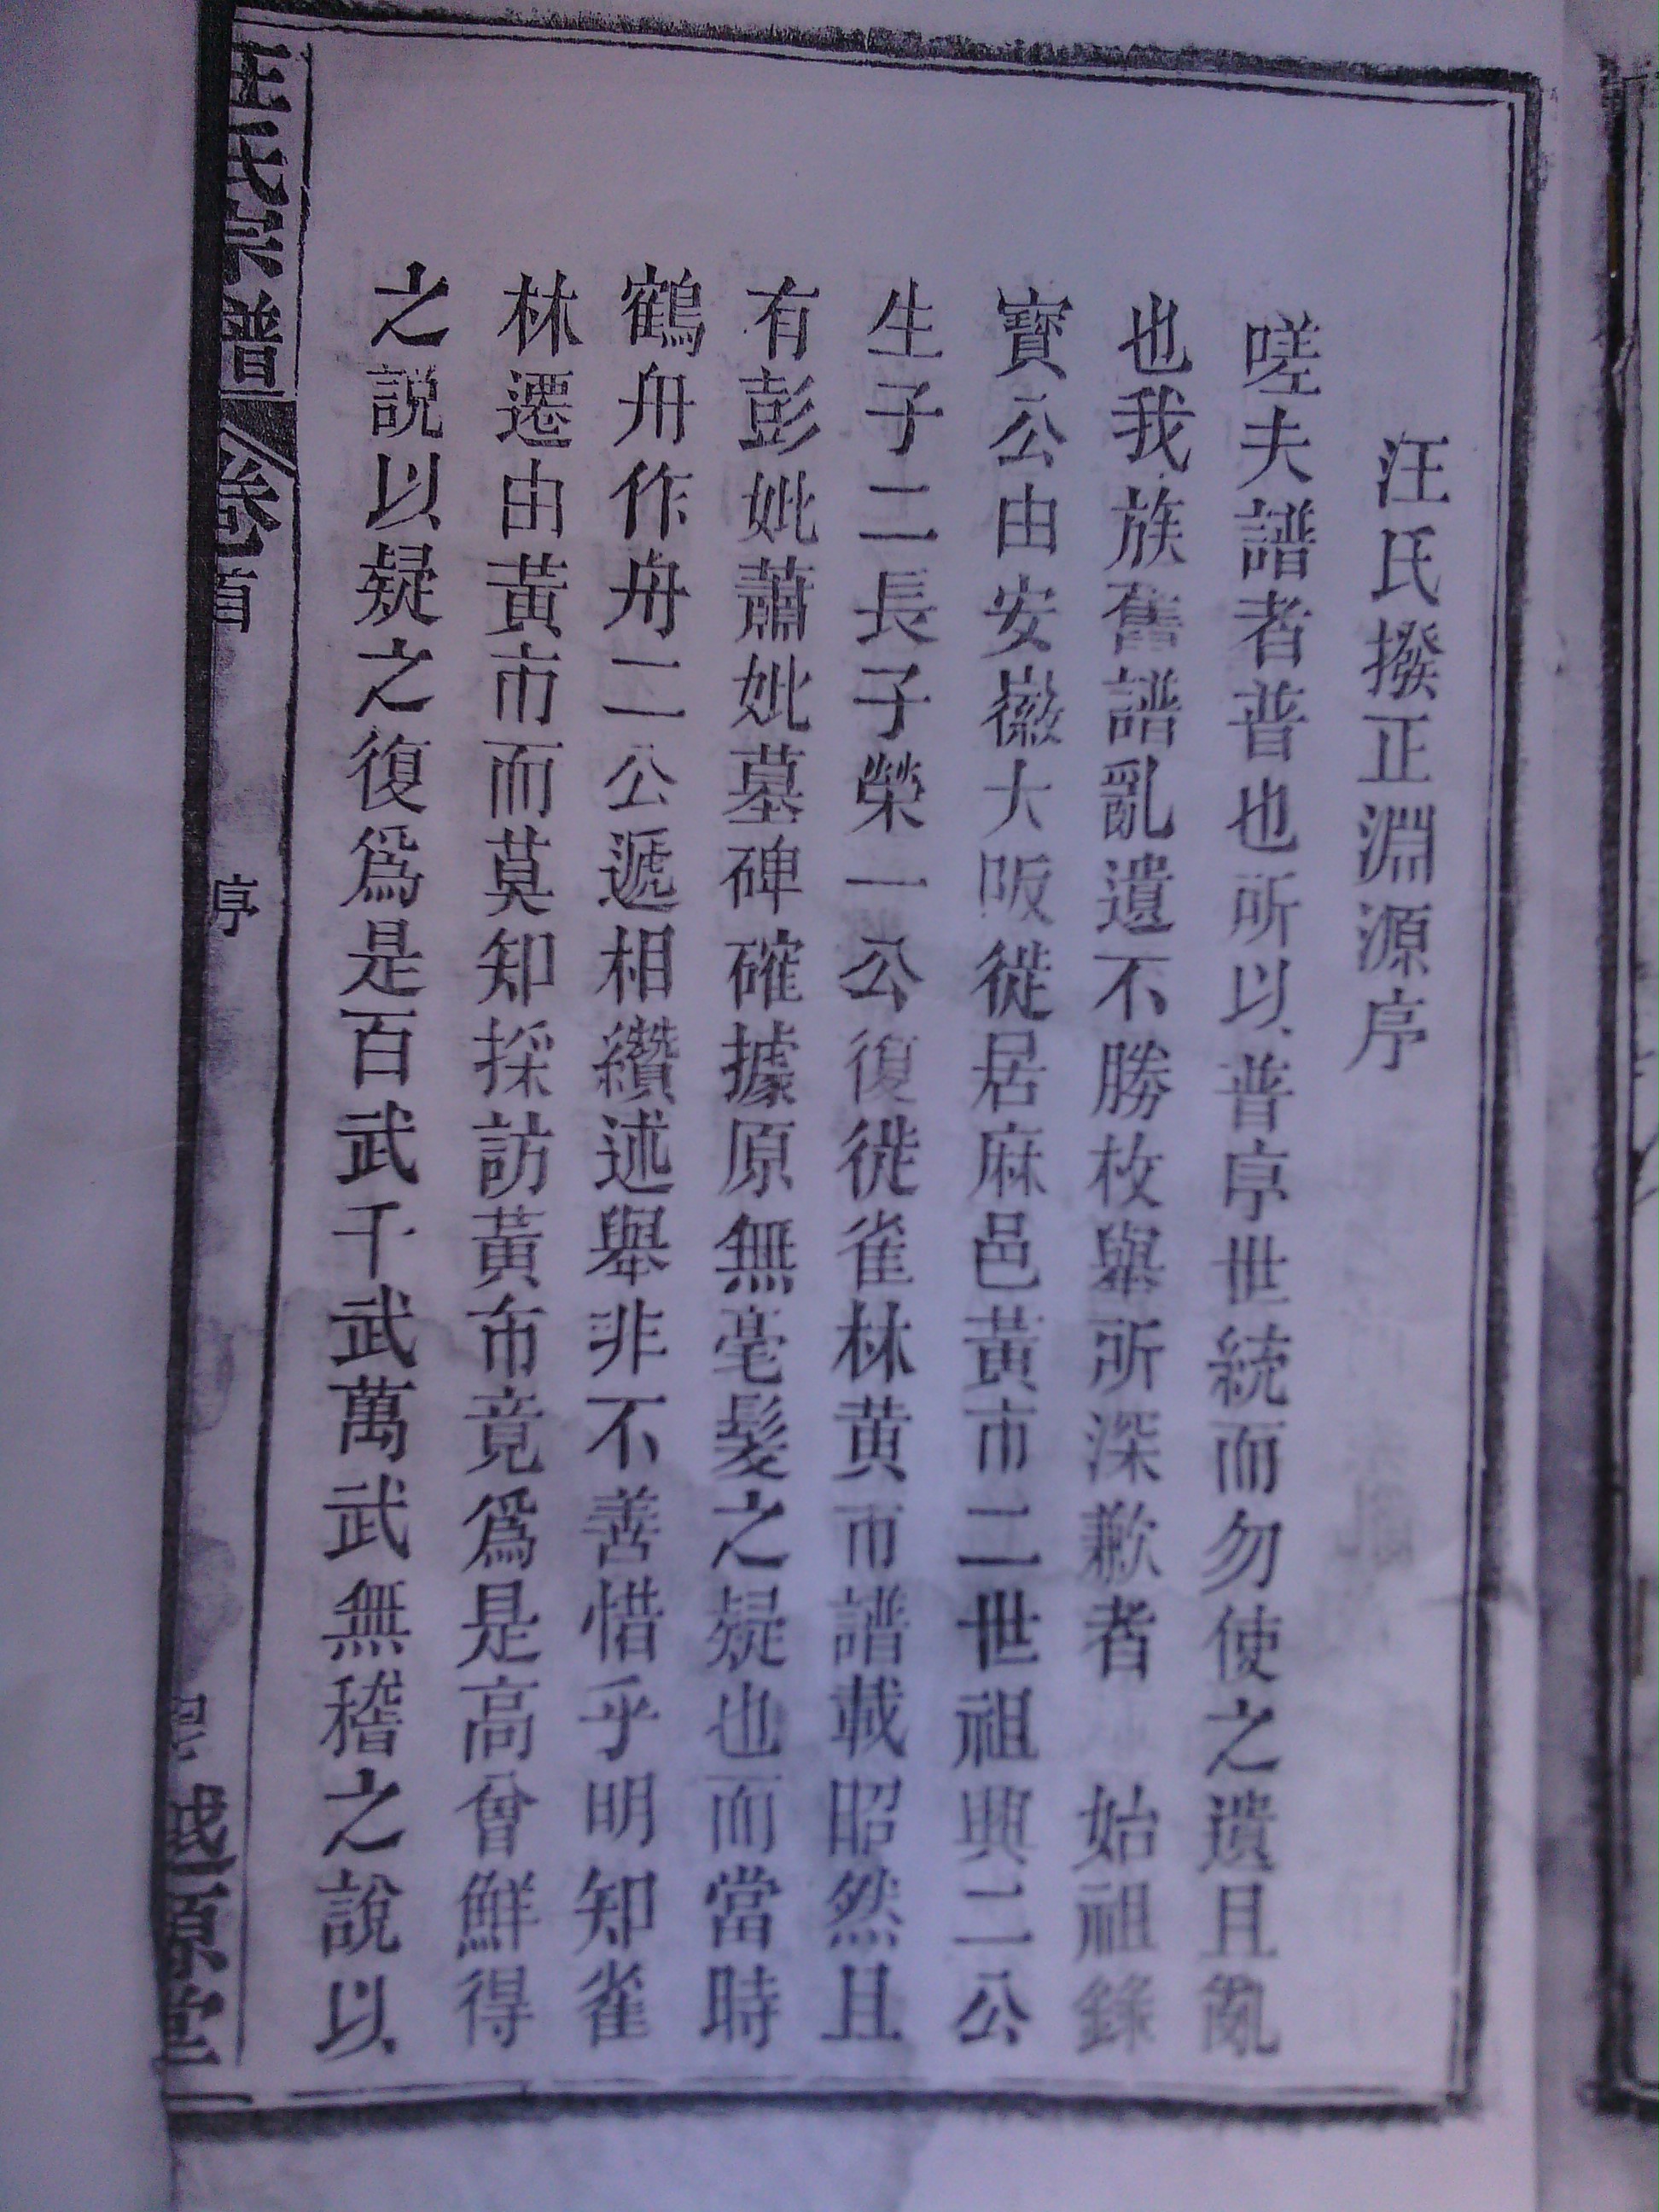 汪氏撥正淵源序
嗟夫譜者普也所以普序世統而勿使之遺且亂
也我族舊譜亂遺不勝枚舉所深歉者　始祖錄
寶公由安徽大阪徙居麻邑黃市二世祖興二公
生子二長子榮一公復徙雀林黃市譜載昭然且
有彭妣蕭妣墓碑確據原無毫髮之疑也而當時
鶴舟作舟二公遞相纘述舉非不善惜乎明知雀
林遷由黃市而莫知採訪黃市竟爲是高曾鮮得
之説以疑之復爲是百武千武萬武無稽之說以
汪氏宗譜
卷首
序
源堂